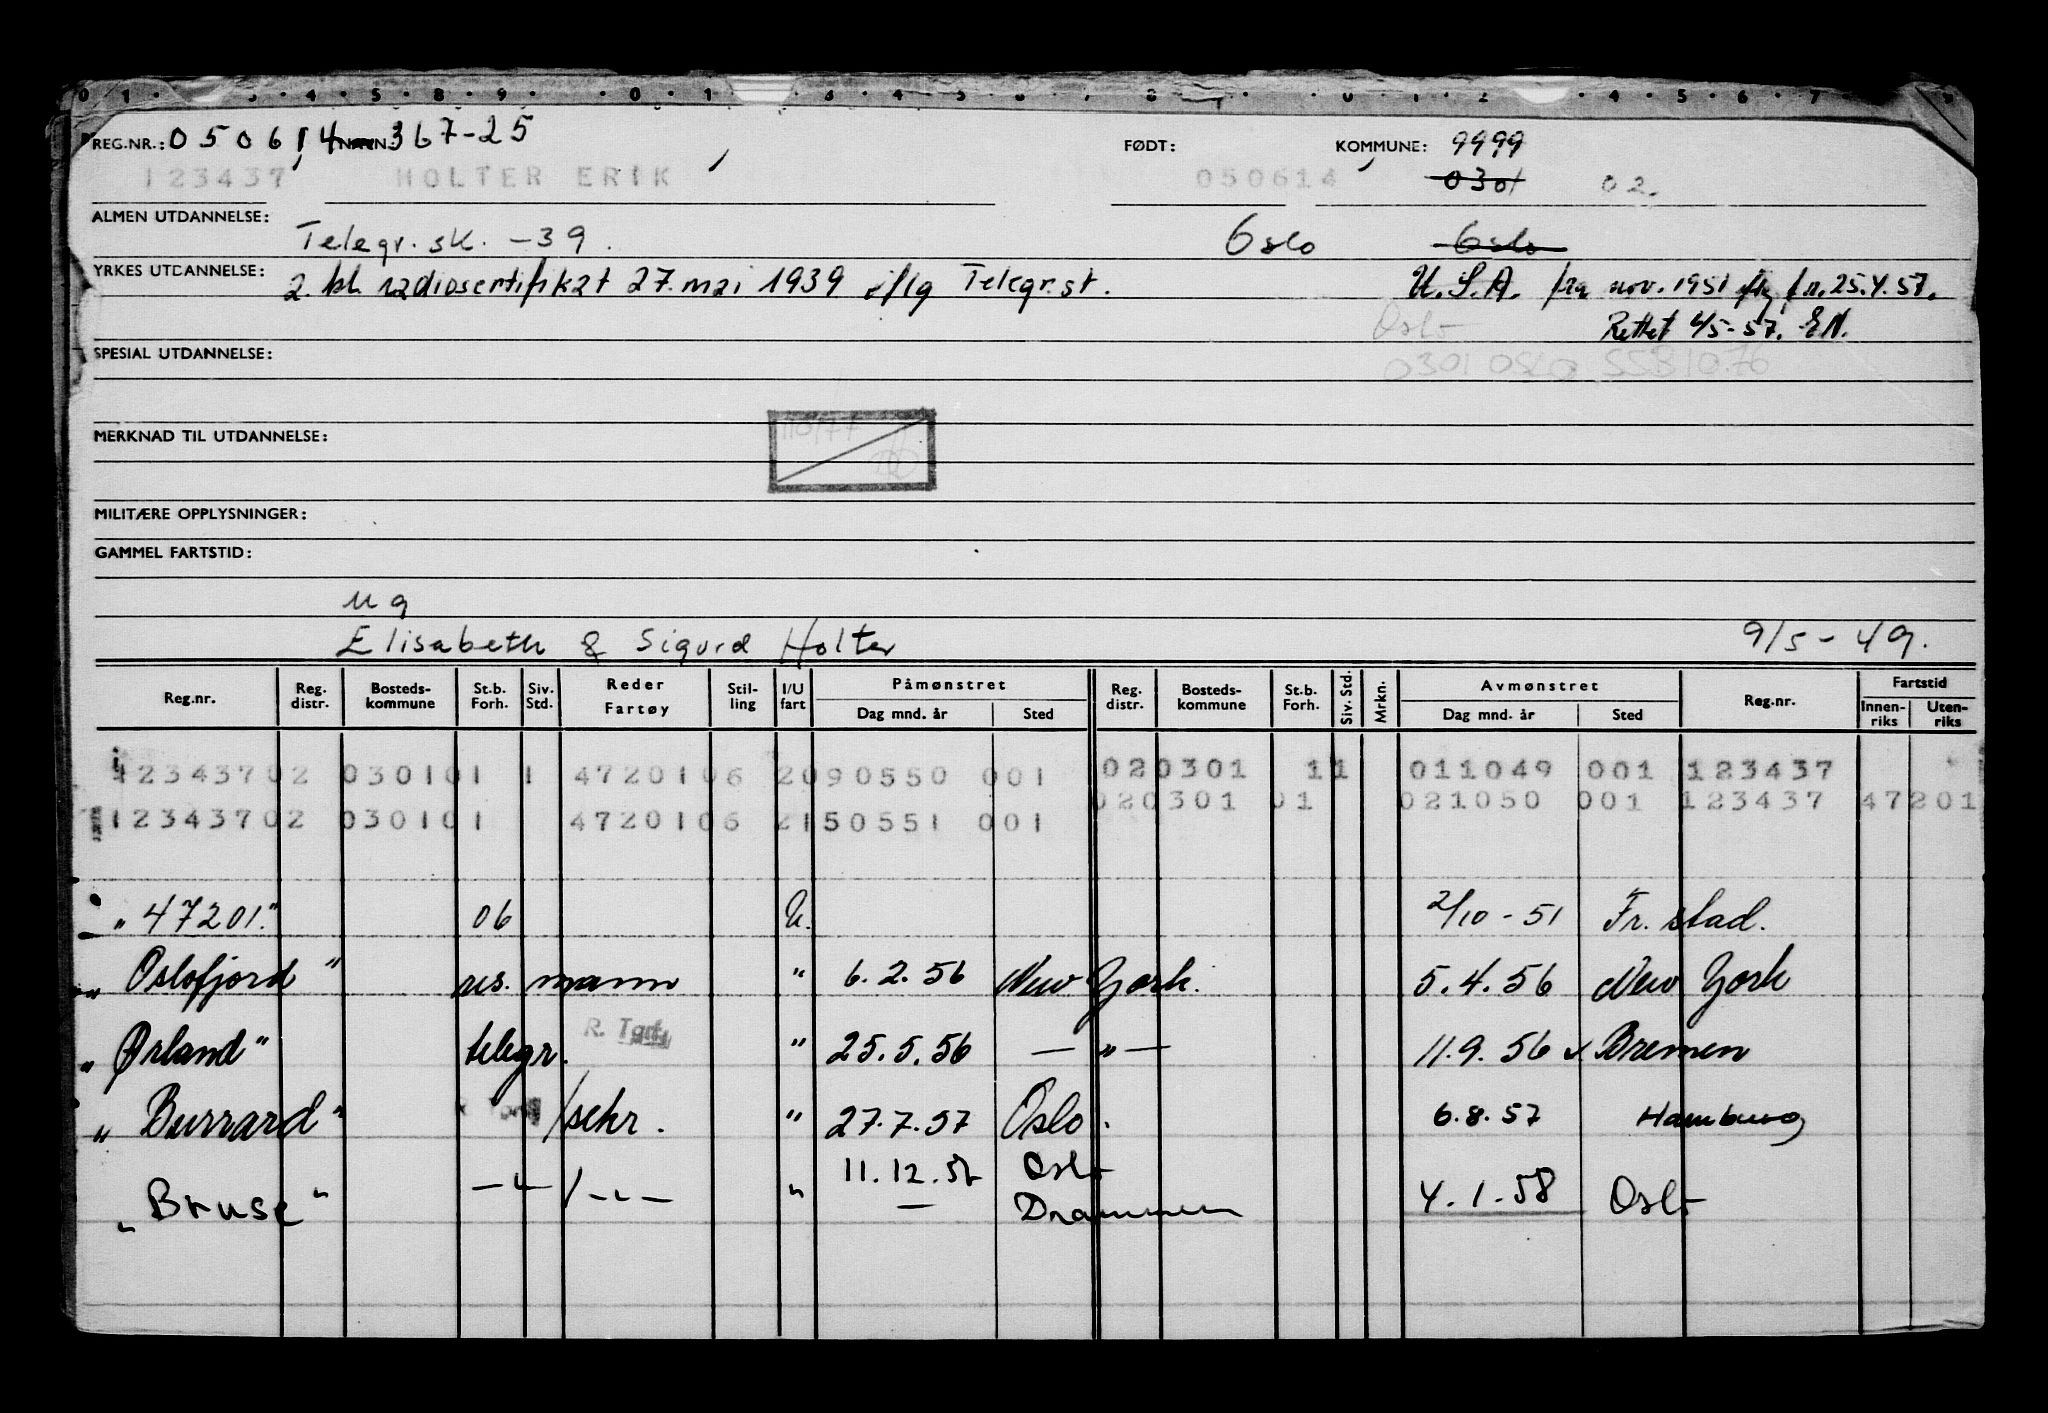 REG.NR.: 050614 NAVN: 367-25 FØDT: KOMMUNE: 9999
123437 HOLTER ERIK 050614 0301 02.
ALMEN UTDANNELSE: Telegr. sk. -39. Oslo Oslo
YRKES UTDANNELSE: 2. kl. radiosertifikat 27. mai 1939 iflg Telegr.st. U.S.A. fra nov. 1951 iflg f.r. 25.4.57.
Oslo Rettet 4/5-57. EN.
SPESIAL UTDANNELSE: 0301 OSLO SSB 10.76
MERKNAD TIL UTDANNELSE:
MILITÆRE OPPLYSNINGER:
GAMMEL FARTSTID:
ug
Elisabeth & Sigurd Holter 9/5-49.
Reg.nr. Reg. distr. Bosteds-kommune St.b. Forh. Siv. Std. Reder Fartøy Stil-ling I/U fart Påmønstret Dag mnd. år Sted Reg. distr. Bosteds-kommune St.b. Forh. Siv. Std. Mrkn. Avmønstret Dag mnd. år Sted Reg.nr. Fartstid Innen-riks Uten-riks
12343702 030101 1 4720106 2090550 001 020301 11 011049 001 123437
020301 01 021050 001 123437 47201
12343702 030101 4720106 2150551 001
"47201." 06 U. 2/10-51 Fr. stad.
"Oslofjord" res. mann " 6.2.56 New York. 5.4.56 New York
"Ørland" telegr. R. Telf. " 25.5.56 — " — 11.9.56 v Bremen
"Burrard" /sekr. " 27.7.57 Oslo. 6.8.57 Hamburg
"Bruse" — " — / — " — " 11.12.57 Oslo
— Drammen 4.1.58 Oslo